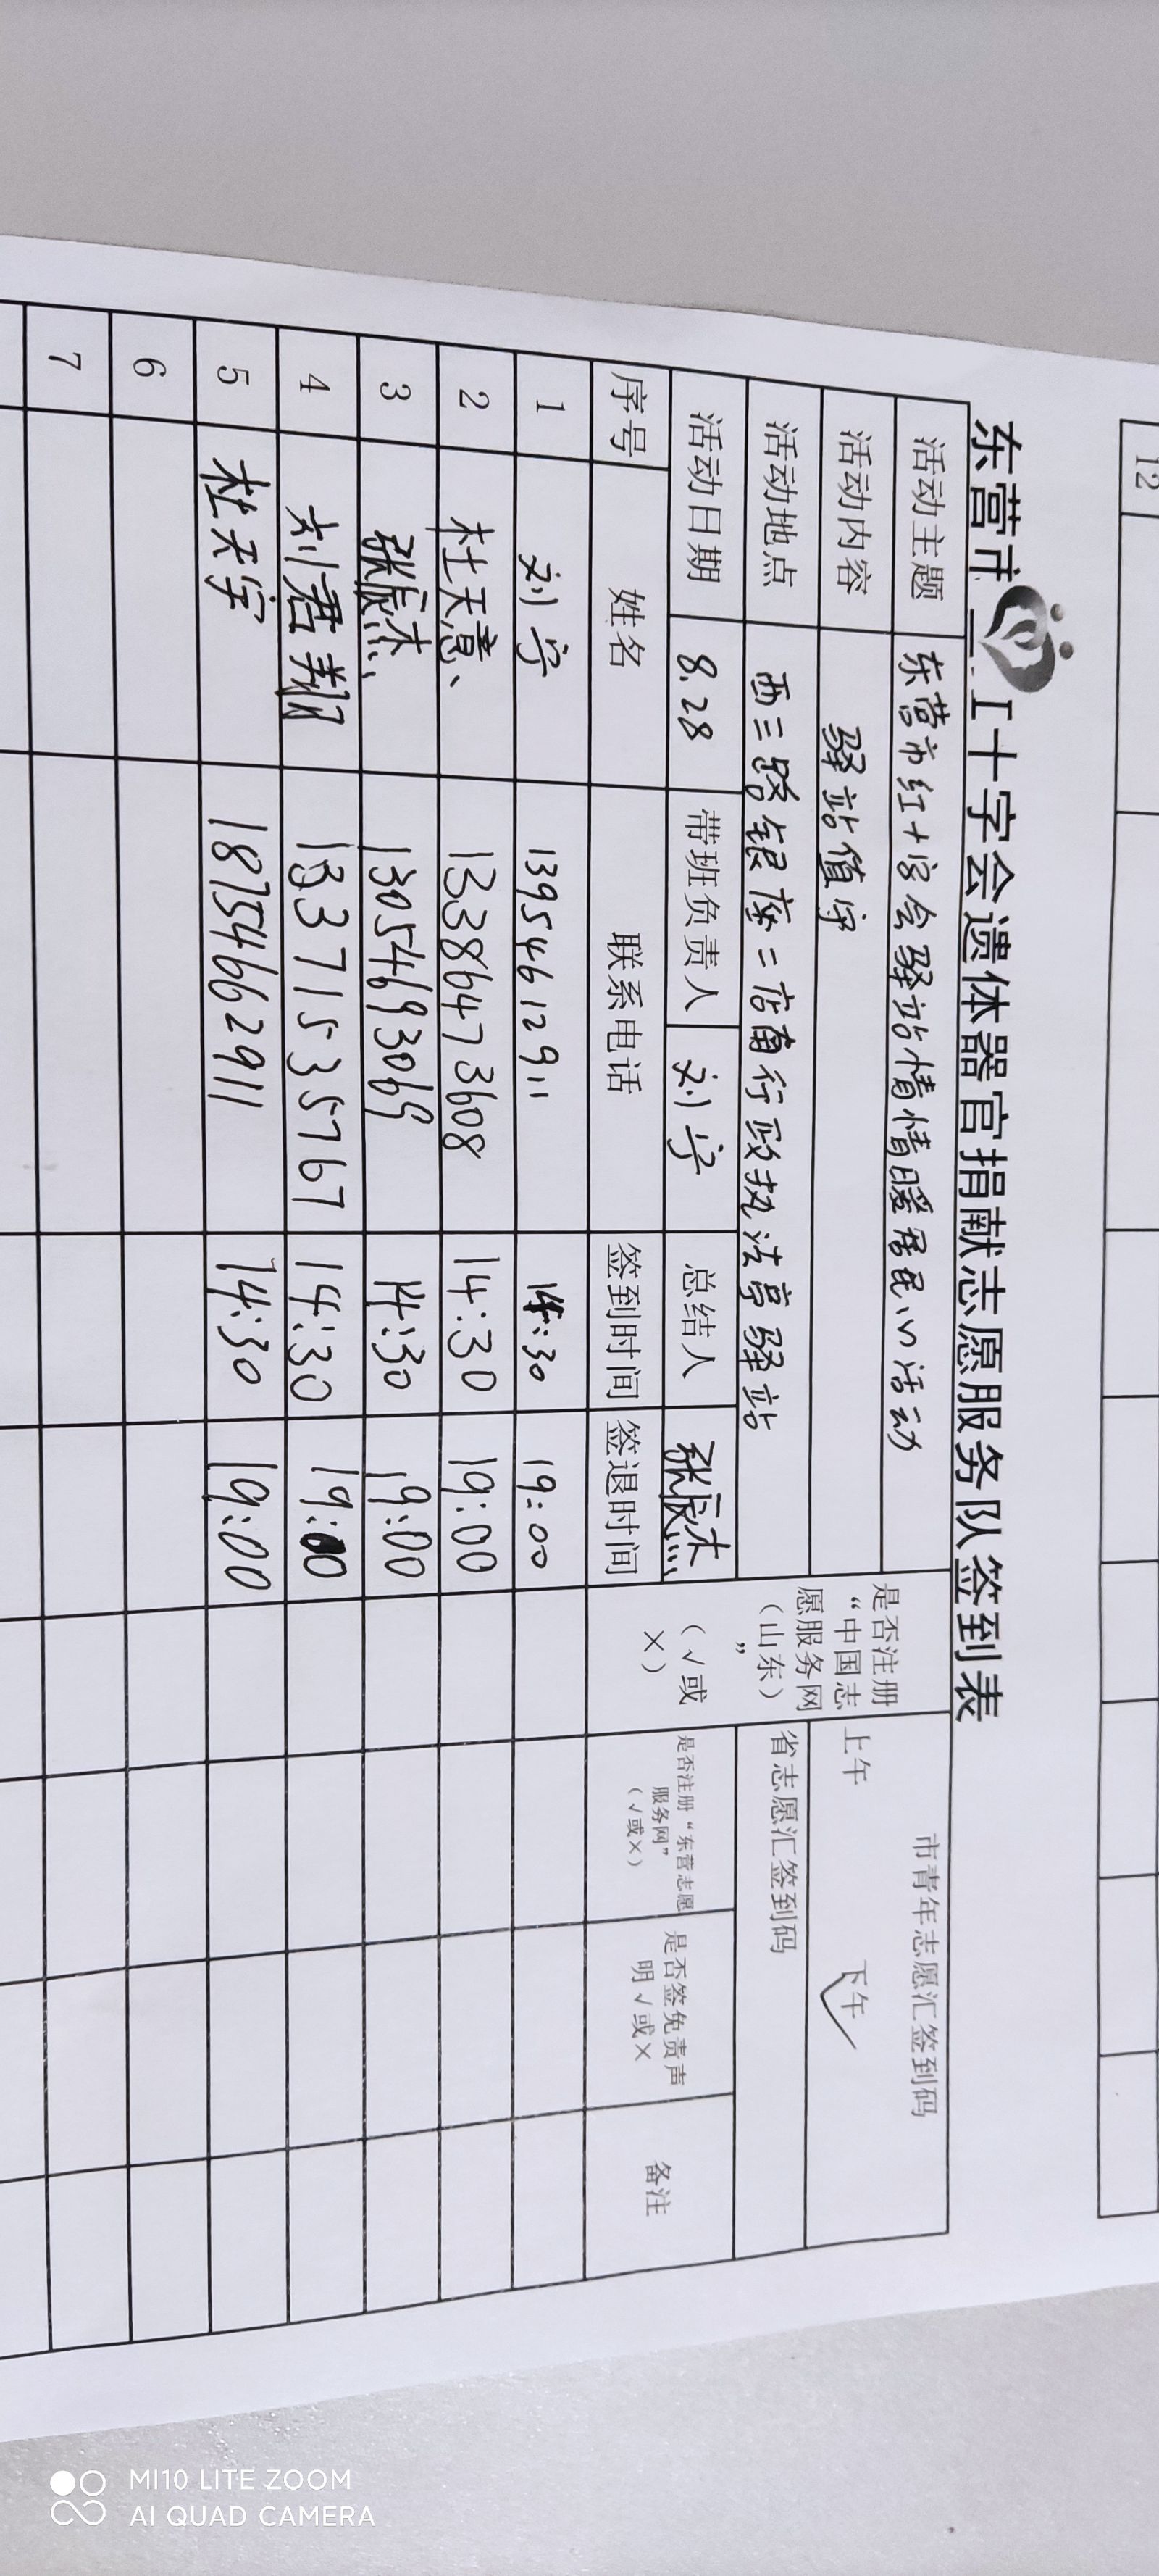 12
东营市红十字会遗体器官捐献志愿服务队签到表
活动主题 东营市红十字会驿站情情暖居民心活动 是否注册“中国志愿服务网（山东）”（√或×） 市青年志愿汇签到码
活动内容 驿站值守 上午 下午 √
活动地点 西三路银座二店南行政执法亭驿站 省志愿汇签到码
活动日期 8.28 带班负责人 刘宇 总结人 张宸杰
序号 姓名 联系电话 签到时间 签退时间 是否注册“东营志愿服务网”（√或×） 是否签免责声明√或× 备注
1 刘宇 13954612911 14:30 19:00
2 杜天意 13386473608 14:30 19:00
3 张宸杰 13054693069 14:30 19:00
4 刘君翔 13371535767 14:30 19:00
5 杜天宇 18754662911 14:30 19:00
6
7
MI10 LITE ZOOM
AI QUAD CAMERA